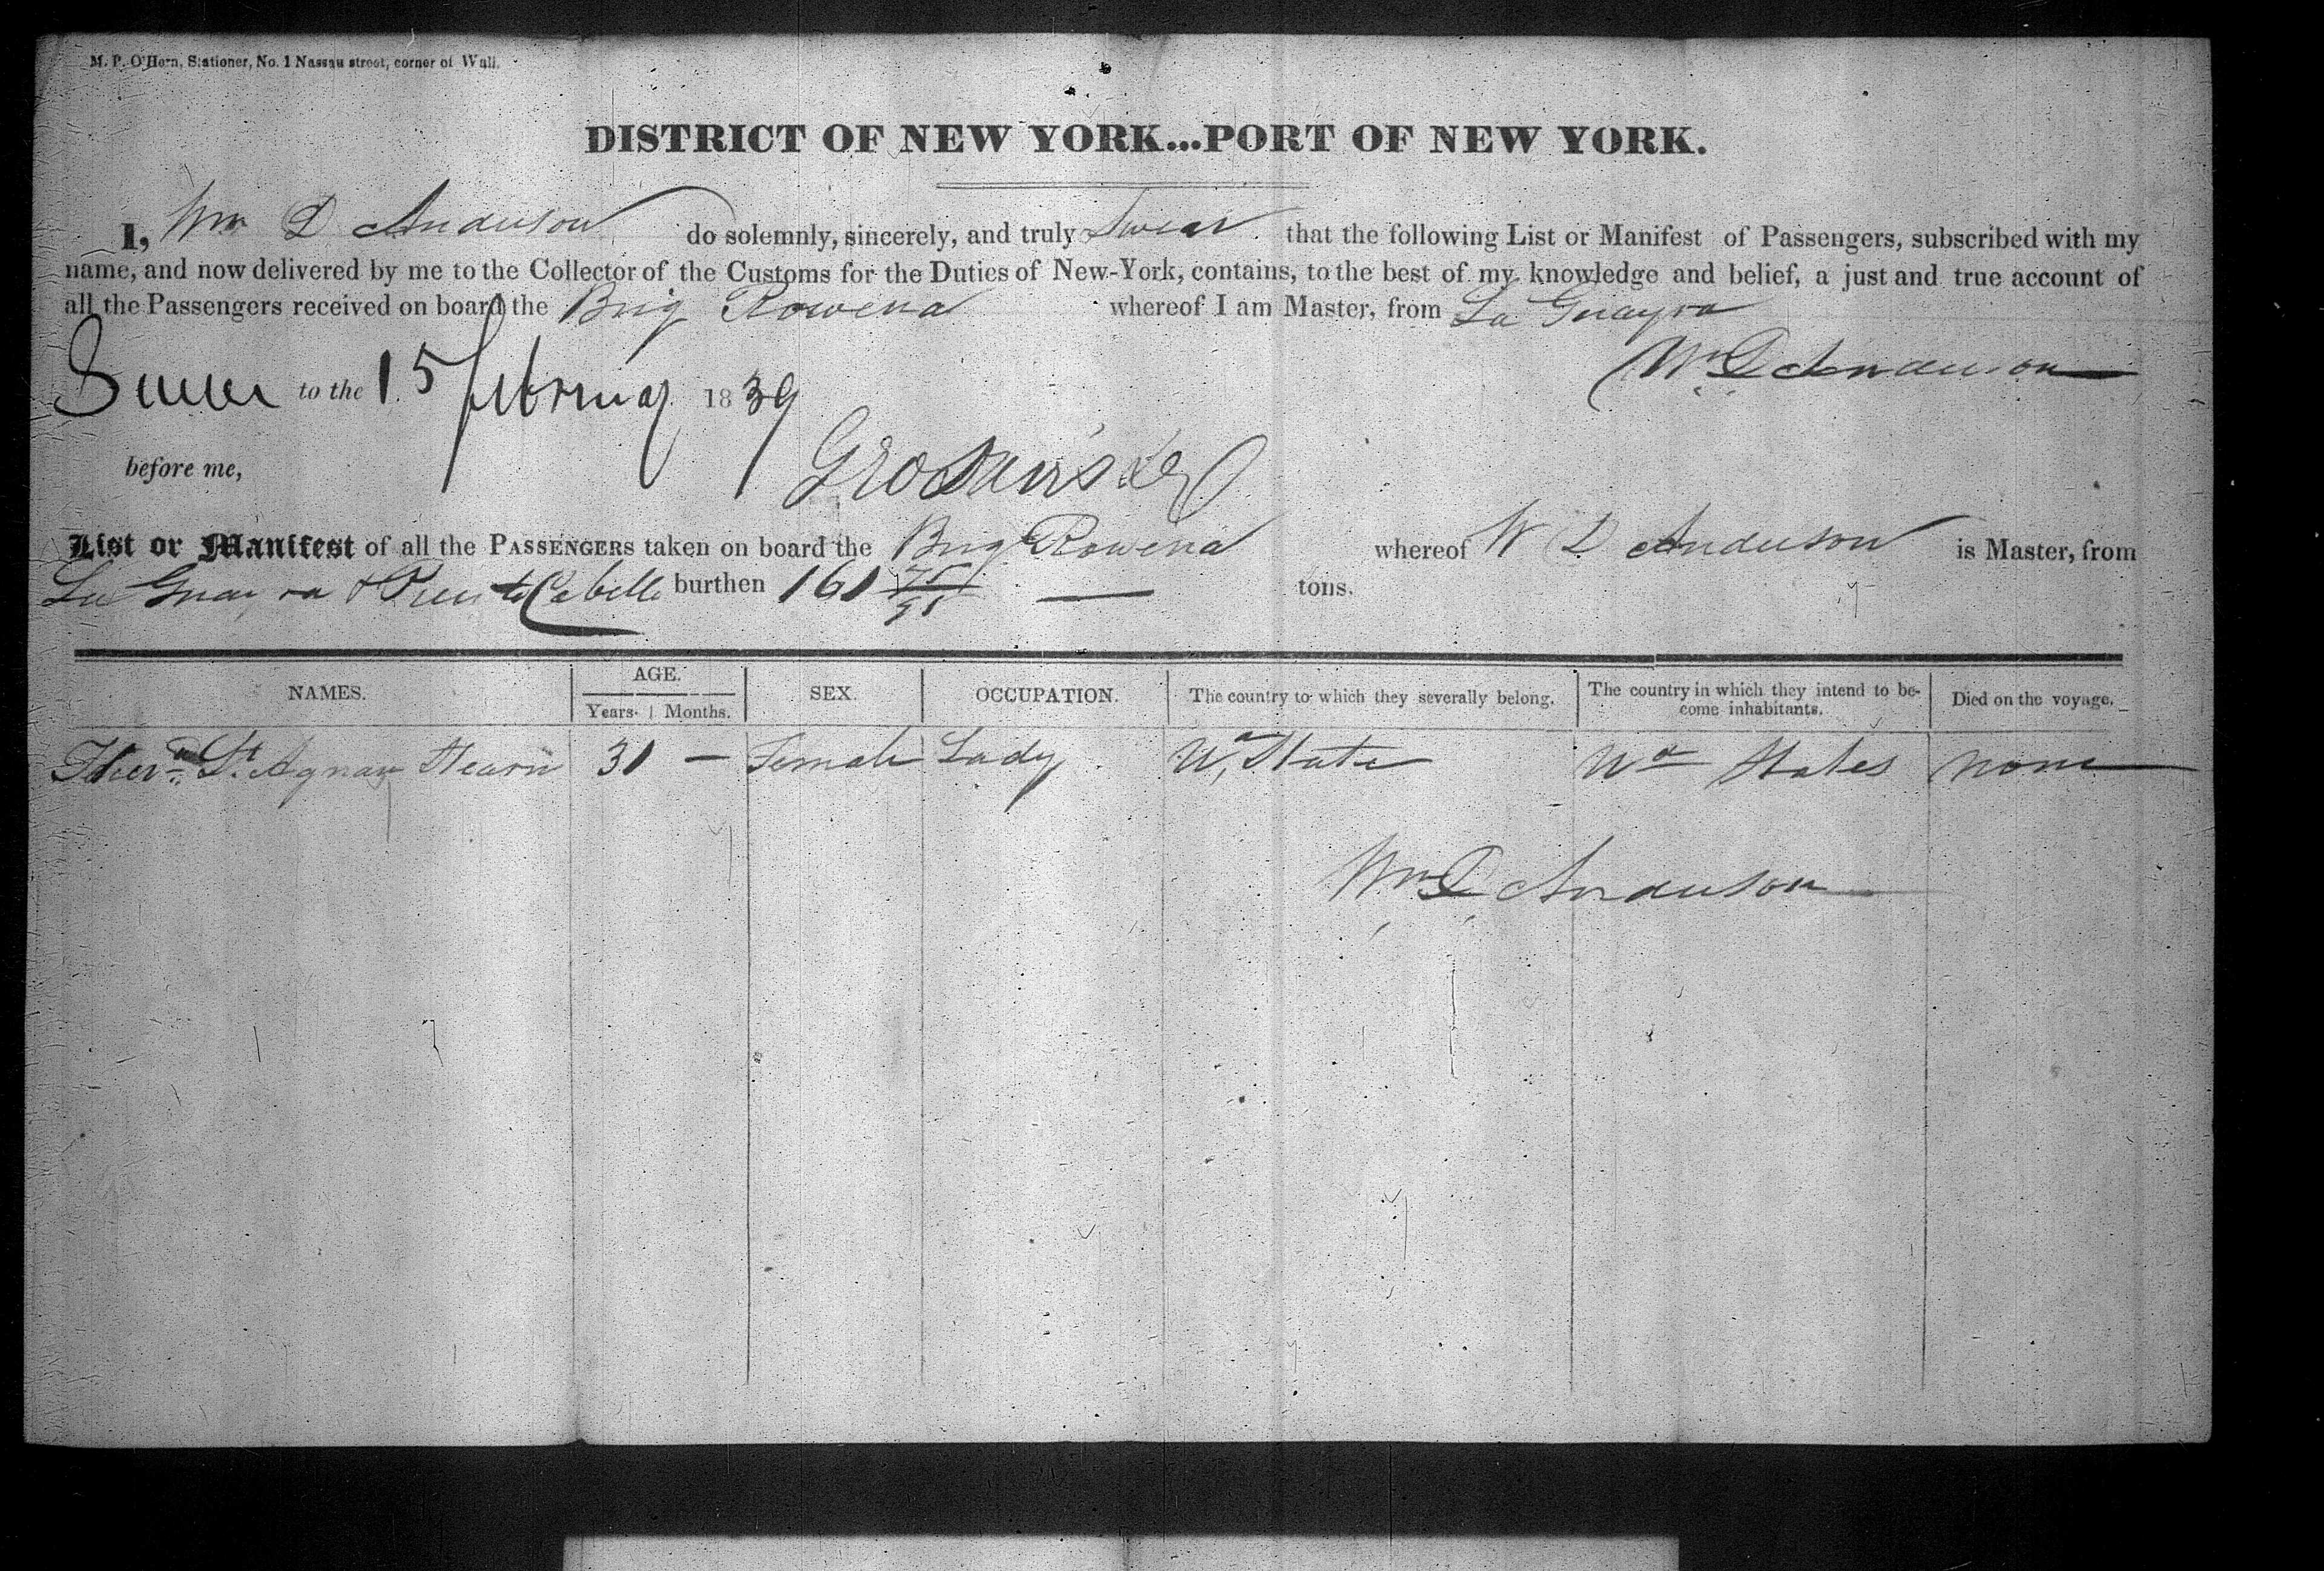 M. P. O'Hern, Stationer, No. 1 Nassau street, corner of Wall.
DISTRICT OF NEW YORK...PORT OF NEW YORK.
I, Wm D Anderson do solemnly, sincerely, and truly Swear that the following List or Manifest of Passengers, subscribed with my
name, and now delivered by me to the Collector of the Customs for the Duties of New-York, contains, to the best of my knowledge and belief, a just and true account of
all the Passengers received on board the Brig Rowena whereof I am Master, from La Guayra
Wm D Anderson
to the 15 February 1839
before me,
List or Manifest of all the PASSENGERS taken on board the Brig Rowena whereof W D Anderson is Master, from
La Guayra & Cabello burthen 161 tons.
NAMES. AGE. Years. Months. SEX. OCCUPATION. The country to which they severally belong. The country in which they intend to become inhabitants. Died on the voyage.
St Agnan Hearn 31 — Female Lady States None
Wm D Anderson